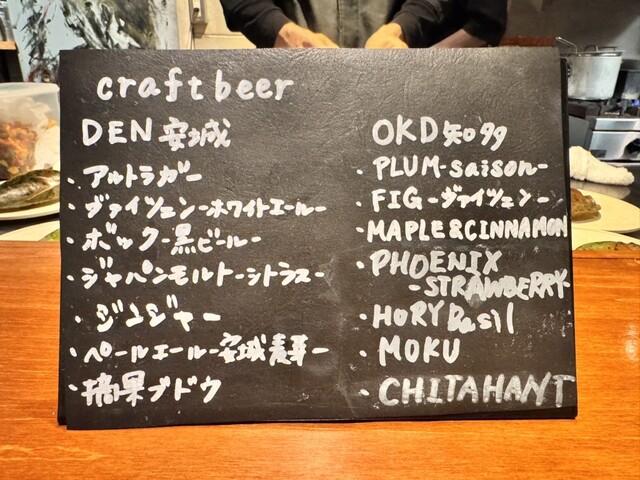 craft beer
DEN 安城
・アルトラガー
・ヴァイツェン-ホワイトエール-
・ボック-黒ビール-
・ジャパンモルト-シトラス-
・ジンジャー
・ペールエール-安城麦芽-
・摘果ブドウ
OKD 知多
・PLUM-saison-
・FIG-ヴァイツェン-
・MAPLE&CINNAMON
・PHOENIX
-STRAWBERRY-
・HORY Basil
・MOKU
・CHITAHANT